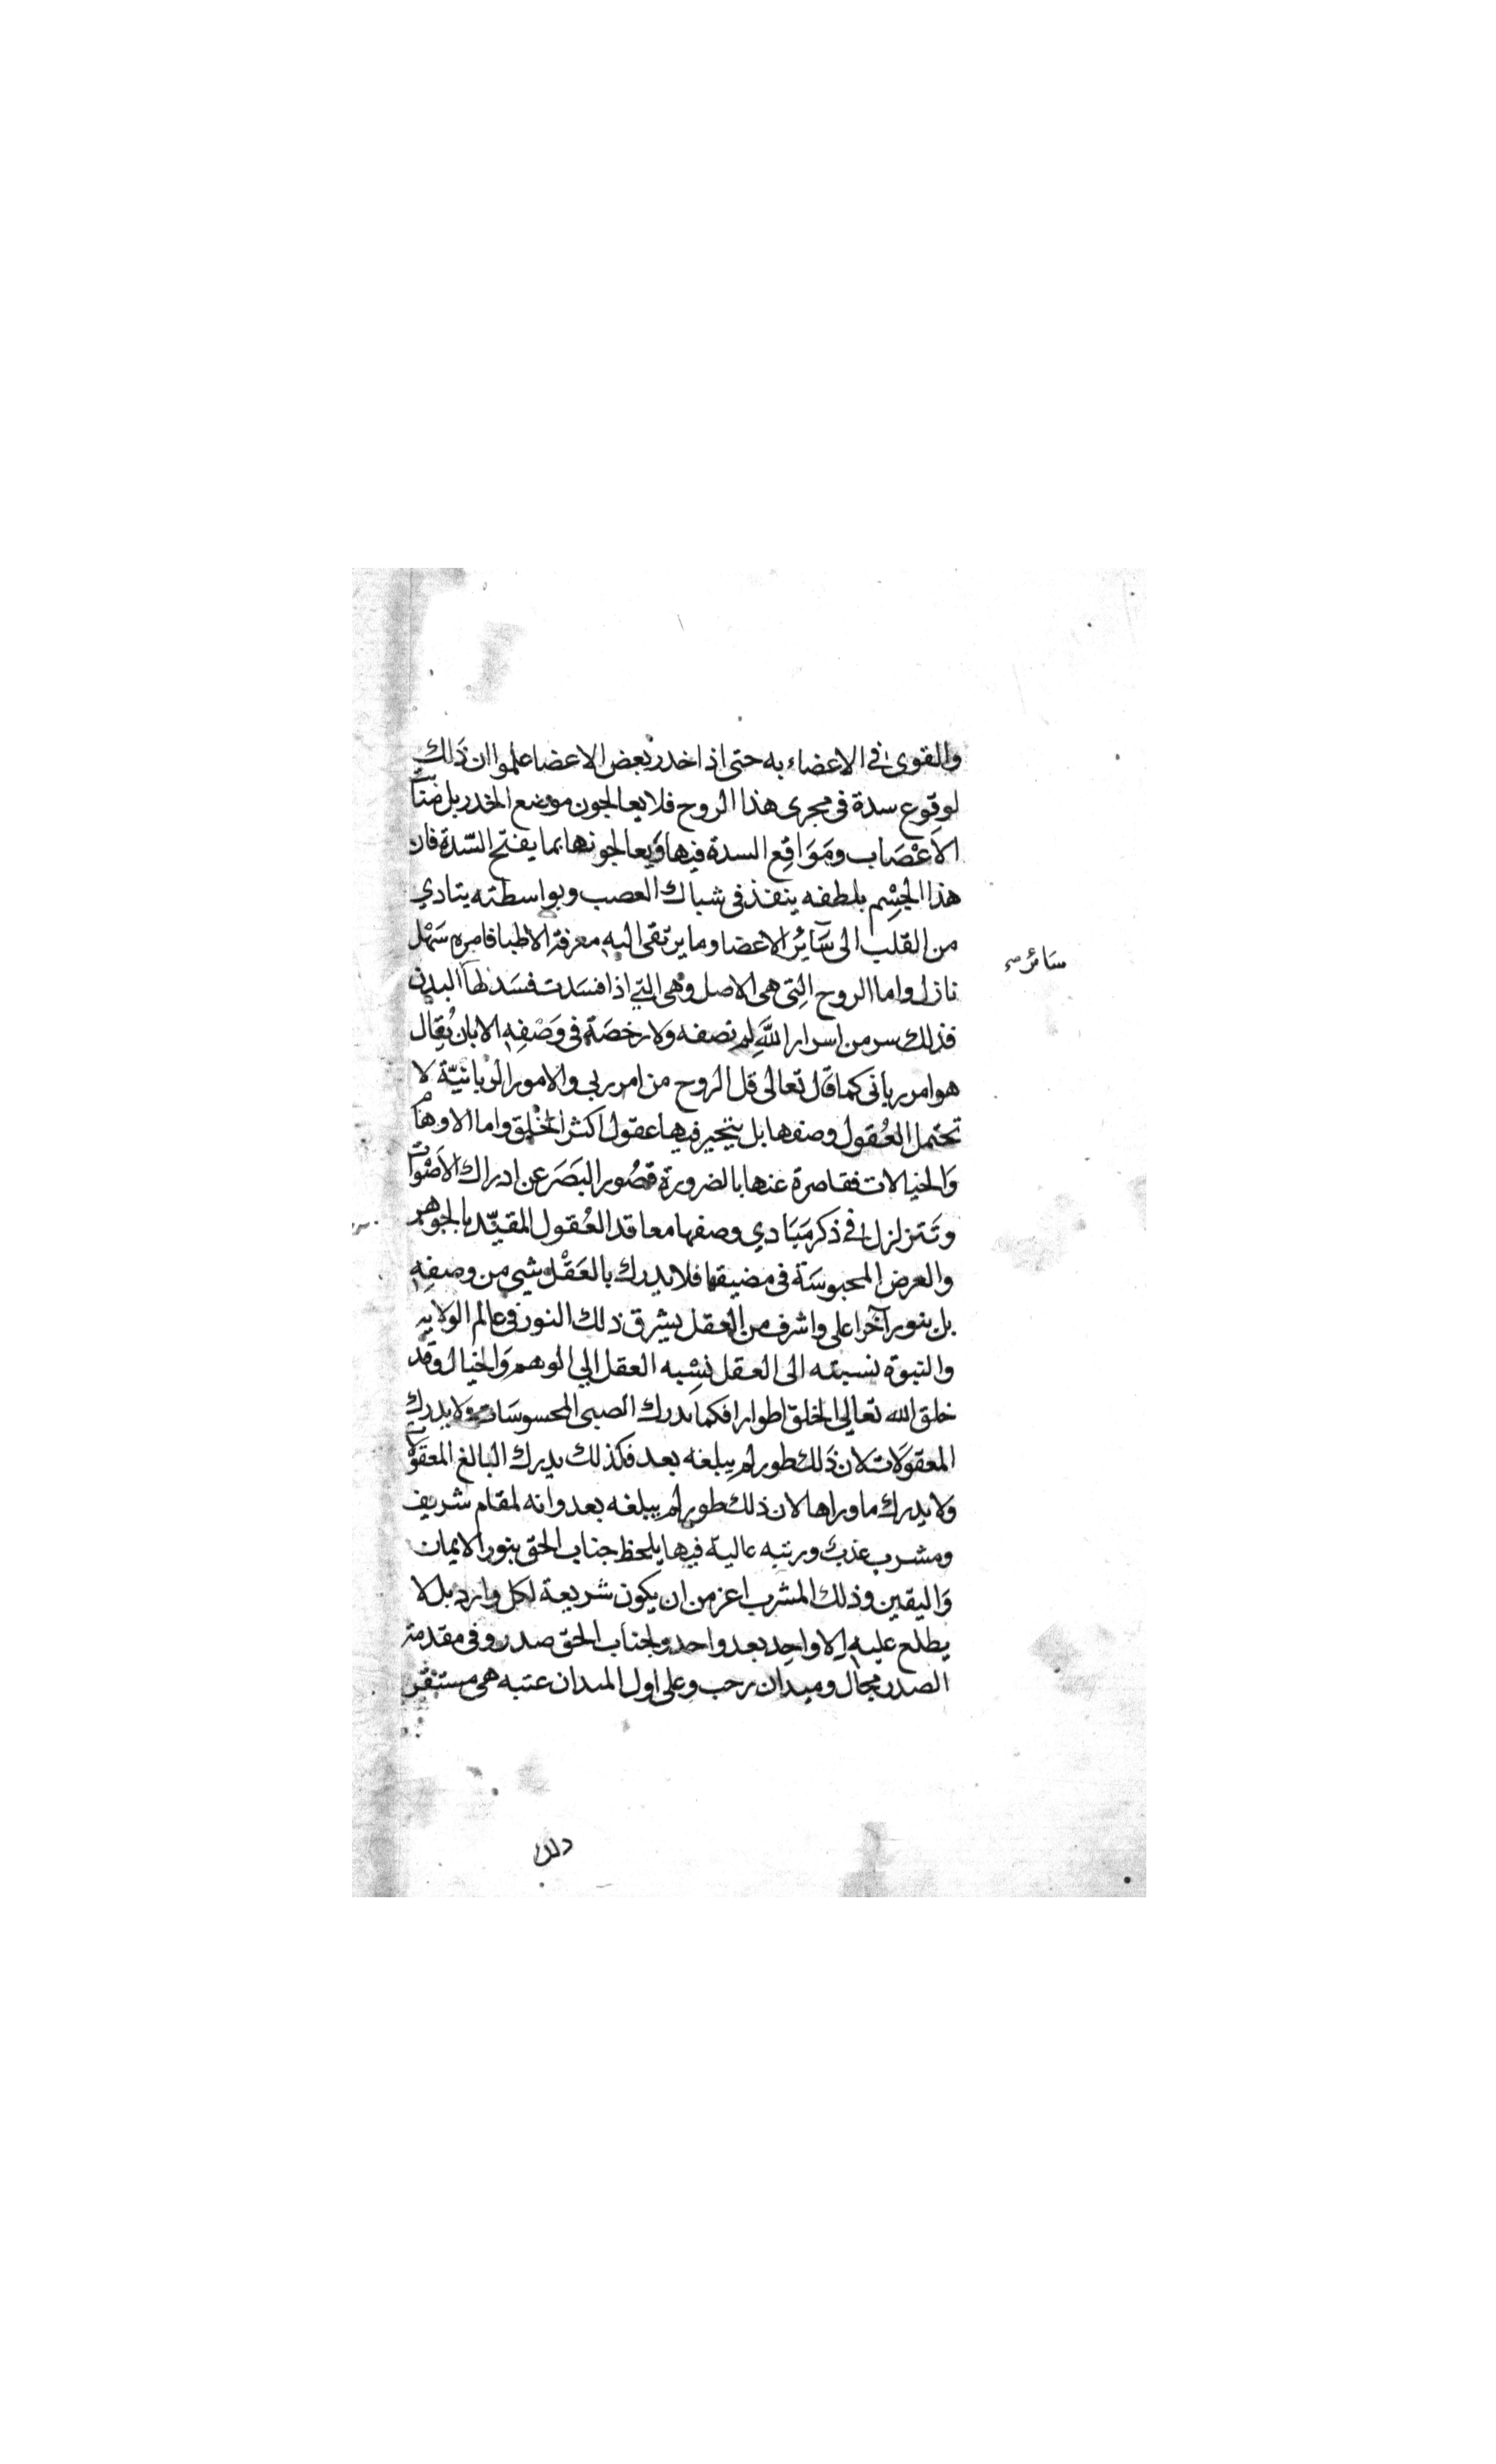 والقوى في الاعضاء به حتى اذا خدر بعض الاعضا علموا ان ذَلك
لوقوع سدة فى مجرى هذا الروح فلا يعالجون موضع الخدر بل منابت
الاَعْصَاب ومَوَاقِع السدة فيها ويعالجونها بما يفتح السّدة فان
هذا الجِسْم بلطفه ينفذ فى شباك العصب وبواسطته يتادي
من القلب الى سَآئر الاعضا وما يرتقى اليه معرفة الاطبا فامره سَهْل
سَائر صح
نازل واما الروح التِى هى الاصل وهى التي اذا فسَدت فسَد لها البدن
فذلك سر من اسرار اللَّه لم نصفه ولا رخصَة فى وَصْفِه الا بان يُقال
هو امر ربانى كما قال تعالى قل الروح من امر ربي والامور الربانيّة لا
تحتمل العُقول وصفها بل يتحير فيها عقول اكثر الخلق واما الاوهام
وَالخيالات فقاصرة عنها بالضرورة قصُور البَصَر عن ادراك الاَصْوات
وتَتزلزل في ذكر مبَادي وصفها معاقد العُقول المقيّد بالجوهر
والعرض المحبوسَة فى مضيقها فلا يدرك بالعَقْل شي من وصفِه
بل بنور آخر اعلى واشرف من العقل يشرق ذلك النور فى عالم الولايه
والنبوة نسبته الى العقل نسْبه العقل الي الوهم وَالخيال وقد
خلق الله تعالي الخلق اطوارا فكما يدرك الصبى المحسوسَات ولا يدرك
المعقوَلات لان ذَلك طور لم يبلغه بعد فكذلك يدرك البالغ المعقوَلات
وَلا يدرك ما وراها لان ذلك طور لم يبلغه بعد وانه لمقام شريف
ومشرب عذب ورتبه عالية فيها يلحظ جناب الحق بنور الايمان
وَاليقين وذلك المشرب اعز من ان يكون شريعة لكل وارد بل لا
يطلع عليه الا واحِد بعد واحد ولجناب الحق صدر وفى مقدمة
الصدر مجال وميدان رحب وعلى اول الميدان عتبه هى مستقر
ذلك